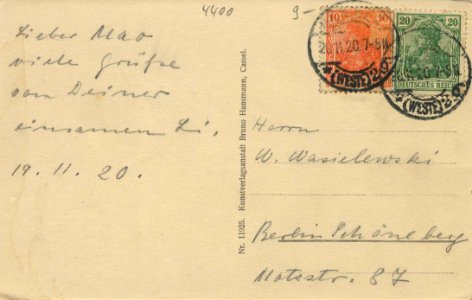 4400
9-
Lieber Mao
viele Grüße
von Deiner
einsamen Li.
19. 11. 20.
Nr. 11925. Kunstverlagsanstalt Bruno Hansmann, Cassel.
10
10
20
20
DEUTSCHES REICH
20.11.20.7-8
*(WESTE)
Herrn
W. Wasielewski
Berlin Schöneberg
87